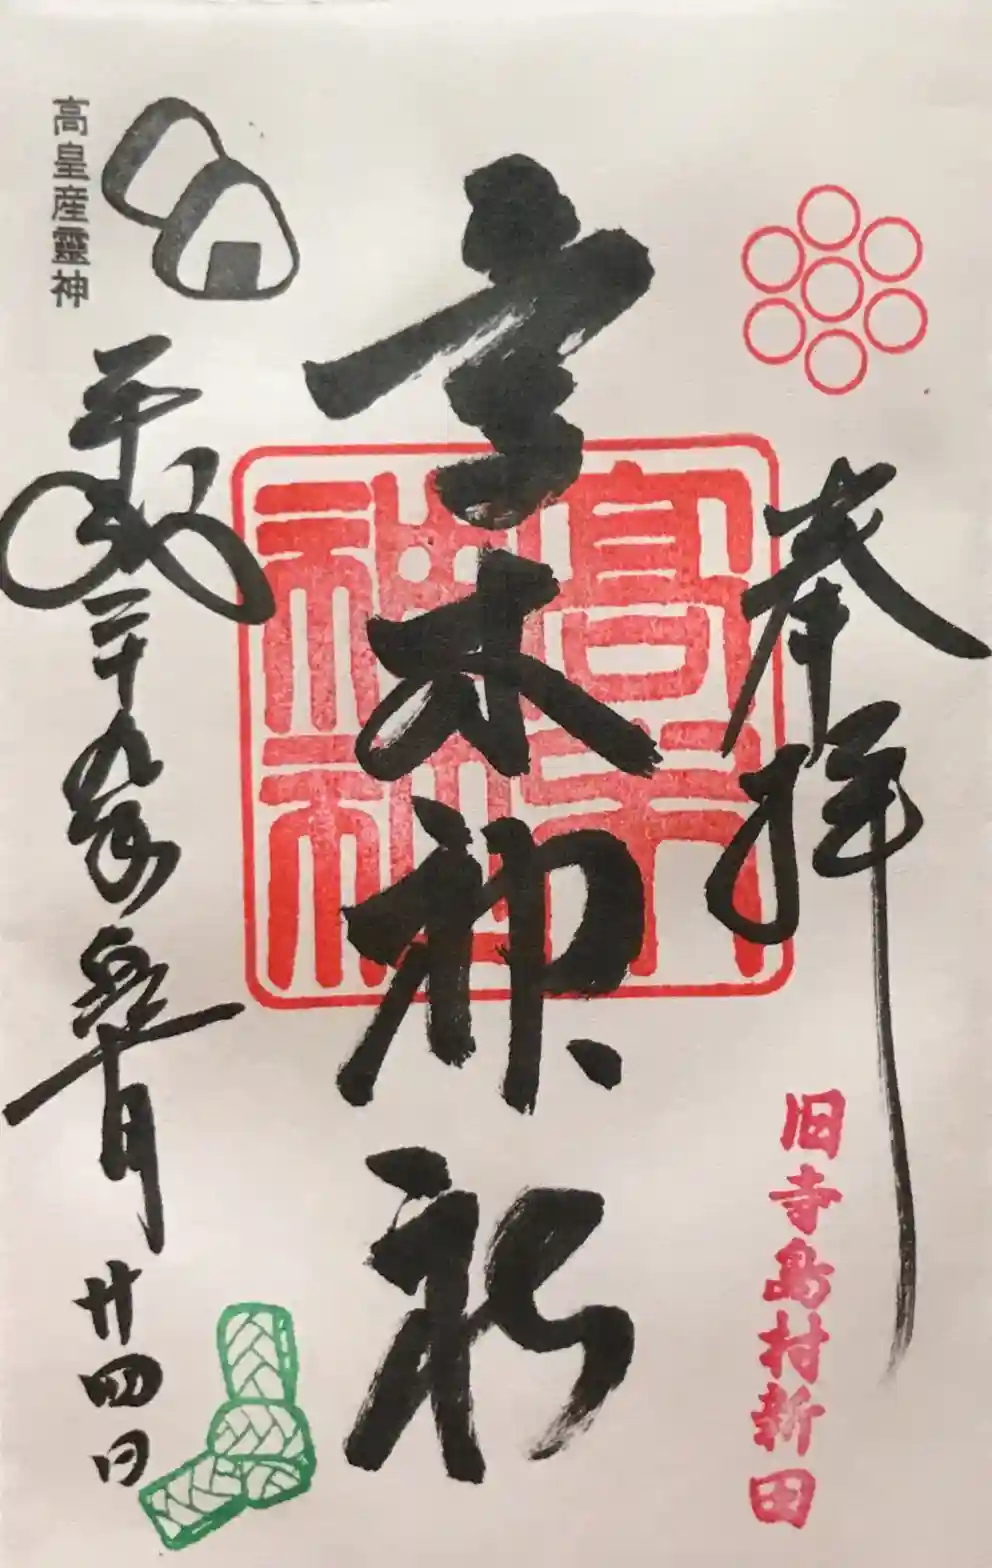 奉拝
旧寺島村新田
高木神社
高木
神社
高皇産靈神
平成二十九年 月廿四日